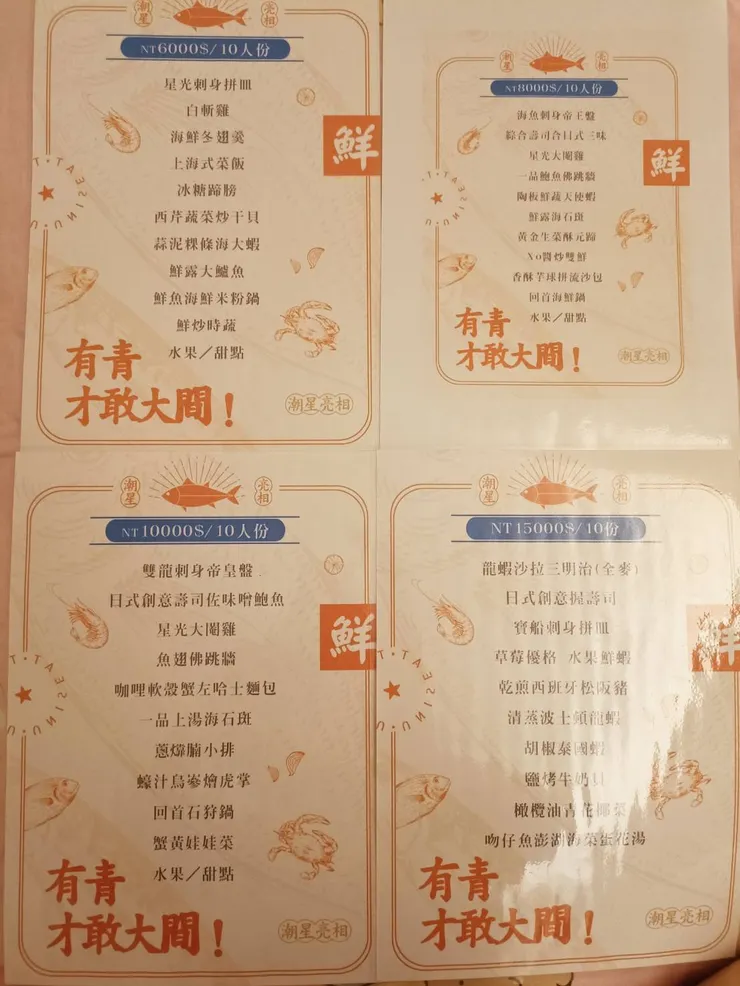 潮星
亮相
NT6000$/10人份
星光刺身拼皿
白斬雞
海鮮冬翅羹
上海式菜飯
冰糖蹄膀
西芹蔬菜炒干貝
蒜泥粿條海大蝦
鮮露大鱸魚
鮮魚海鮮米粉鍋
鮮炒時蔬
水果／甜點
鮮
有青
才敢大間！
潮星亮相
潮星
亮相
NT8000$/10人份
海魚刺身帝王盤
綜合壽司合日式三味
星光大閹雞
一品鮑魚佛跳牆
陶板鮮蔬天使蝦
鮮露海石斑
黃金生菜酥元蹄
XO醬炒雙鮮
香酥芋球拼流沙包
回首海鮮鍋
水果／甜點
鮮
有青
才敢大間！
潮星亮相
潮星
亮相
NT10000$/10人份
雙龍刺身帝皇盤
日式創意壽司佐味噌鮑魚
星光大閹雞
魚翅佛跳牆
咖哩軟殼蟹左哈士麵包
一品上湯海石斑
蔥燒腩小排
蠔汁烏參燴虎掌
回首石狩鍋
蟹黃娃娃菜
水果／甜點
鮮
有青
才敢大間！
潮星亮相
潮星
亮相
NT15000$/10份
龍蝦沙拉三明治(全麥)
日式創意握壽司
寶船刺身拼皿
草莓優格 水果鮮蝦
乾煎西班牙松阪豬
清蒸波士頓龍蝦
胡椒泰國蝦
鹽烤牛奶貝
橄欖油青花椰菜
吻仔魚澎湖海菜蛋花湯
鮮
有青
才敢大間！
潮星亮相